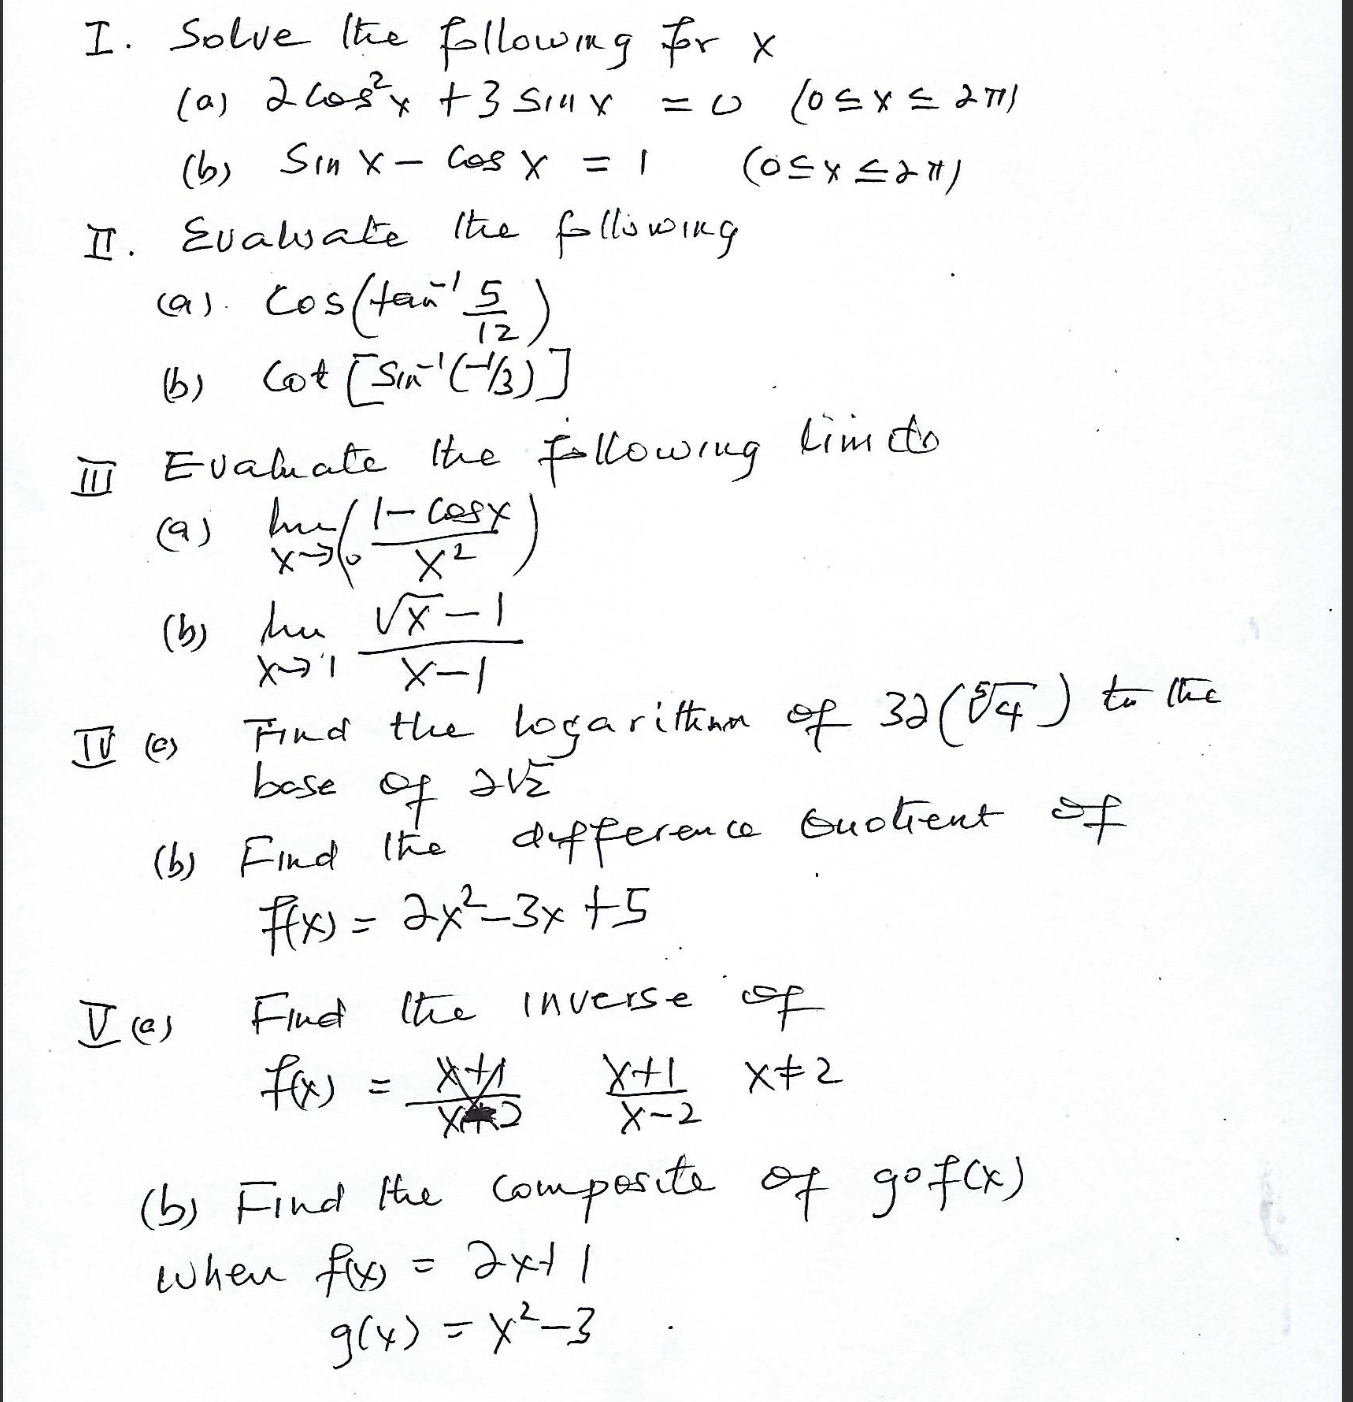 I. Solve the following for x
(a) 2cos²x + 3 sin x = 0 (0 ≤ x ≤ 2π)
(b) Sin x - Cos x = 1 (0 ≤ x ≤ 2π)
II. Evaluate the following
(a). Cos(tan⁻¹ 5/12)
(b) Cot [Sin⁻¹(-1/3)]
III Evaluate the following limits
(a) lim x→0 ((1 - cos x)/x²)
(b) lim x→1 (√x - 1)/(x - 1)
IV (a) Find the logarithm of 32(⁵√4) to the
base of 2√2
(b) Find the difference Quotient of
f(x) = 2x² - 3x + 5
V (a) Find the inverse of
f(x) = (x+1)/(x-2) x ≠ 2
(b) Find the composite of gof(x)
when f(x) = 2x+1
g(x) = x² - 3